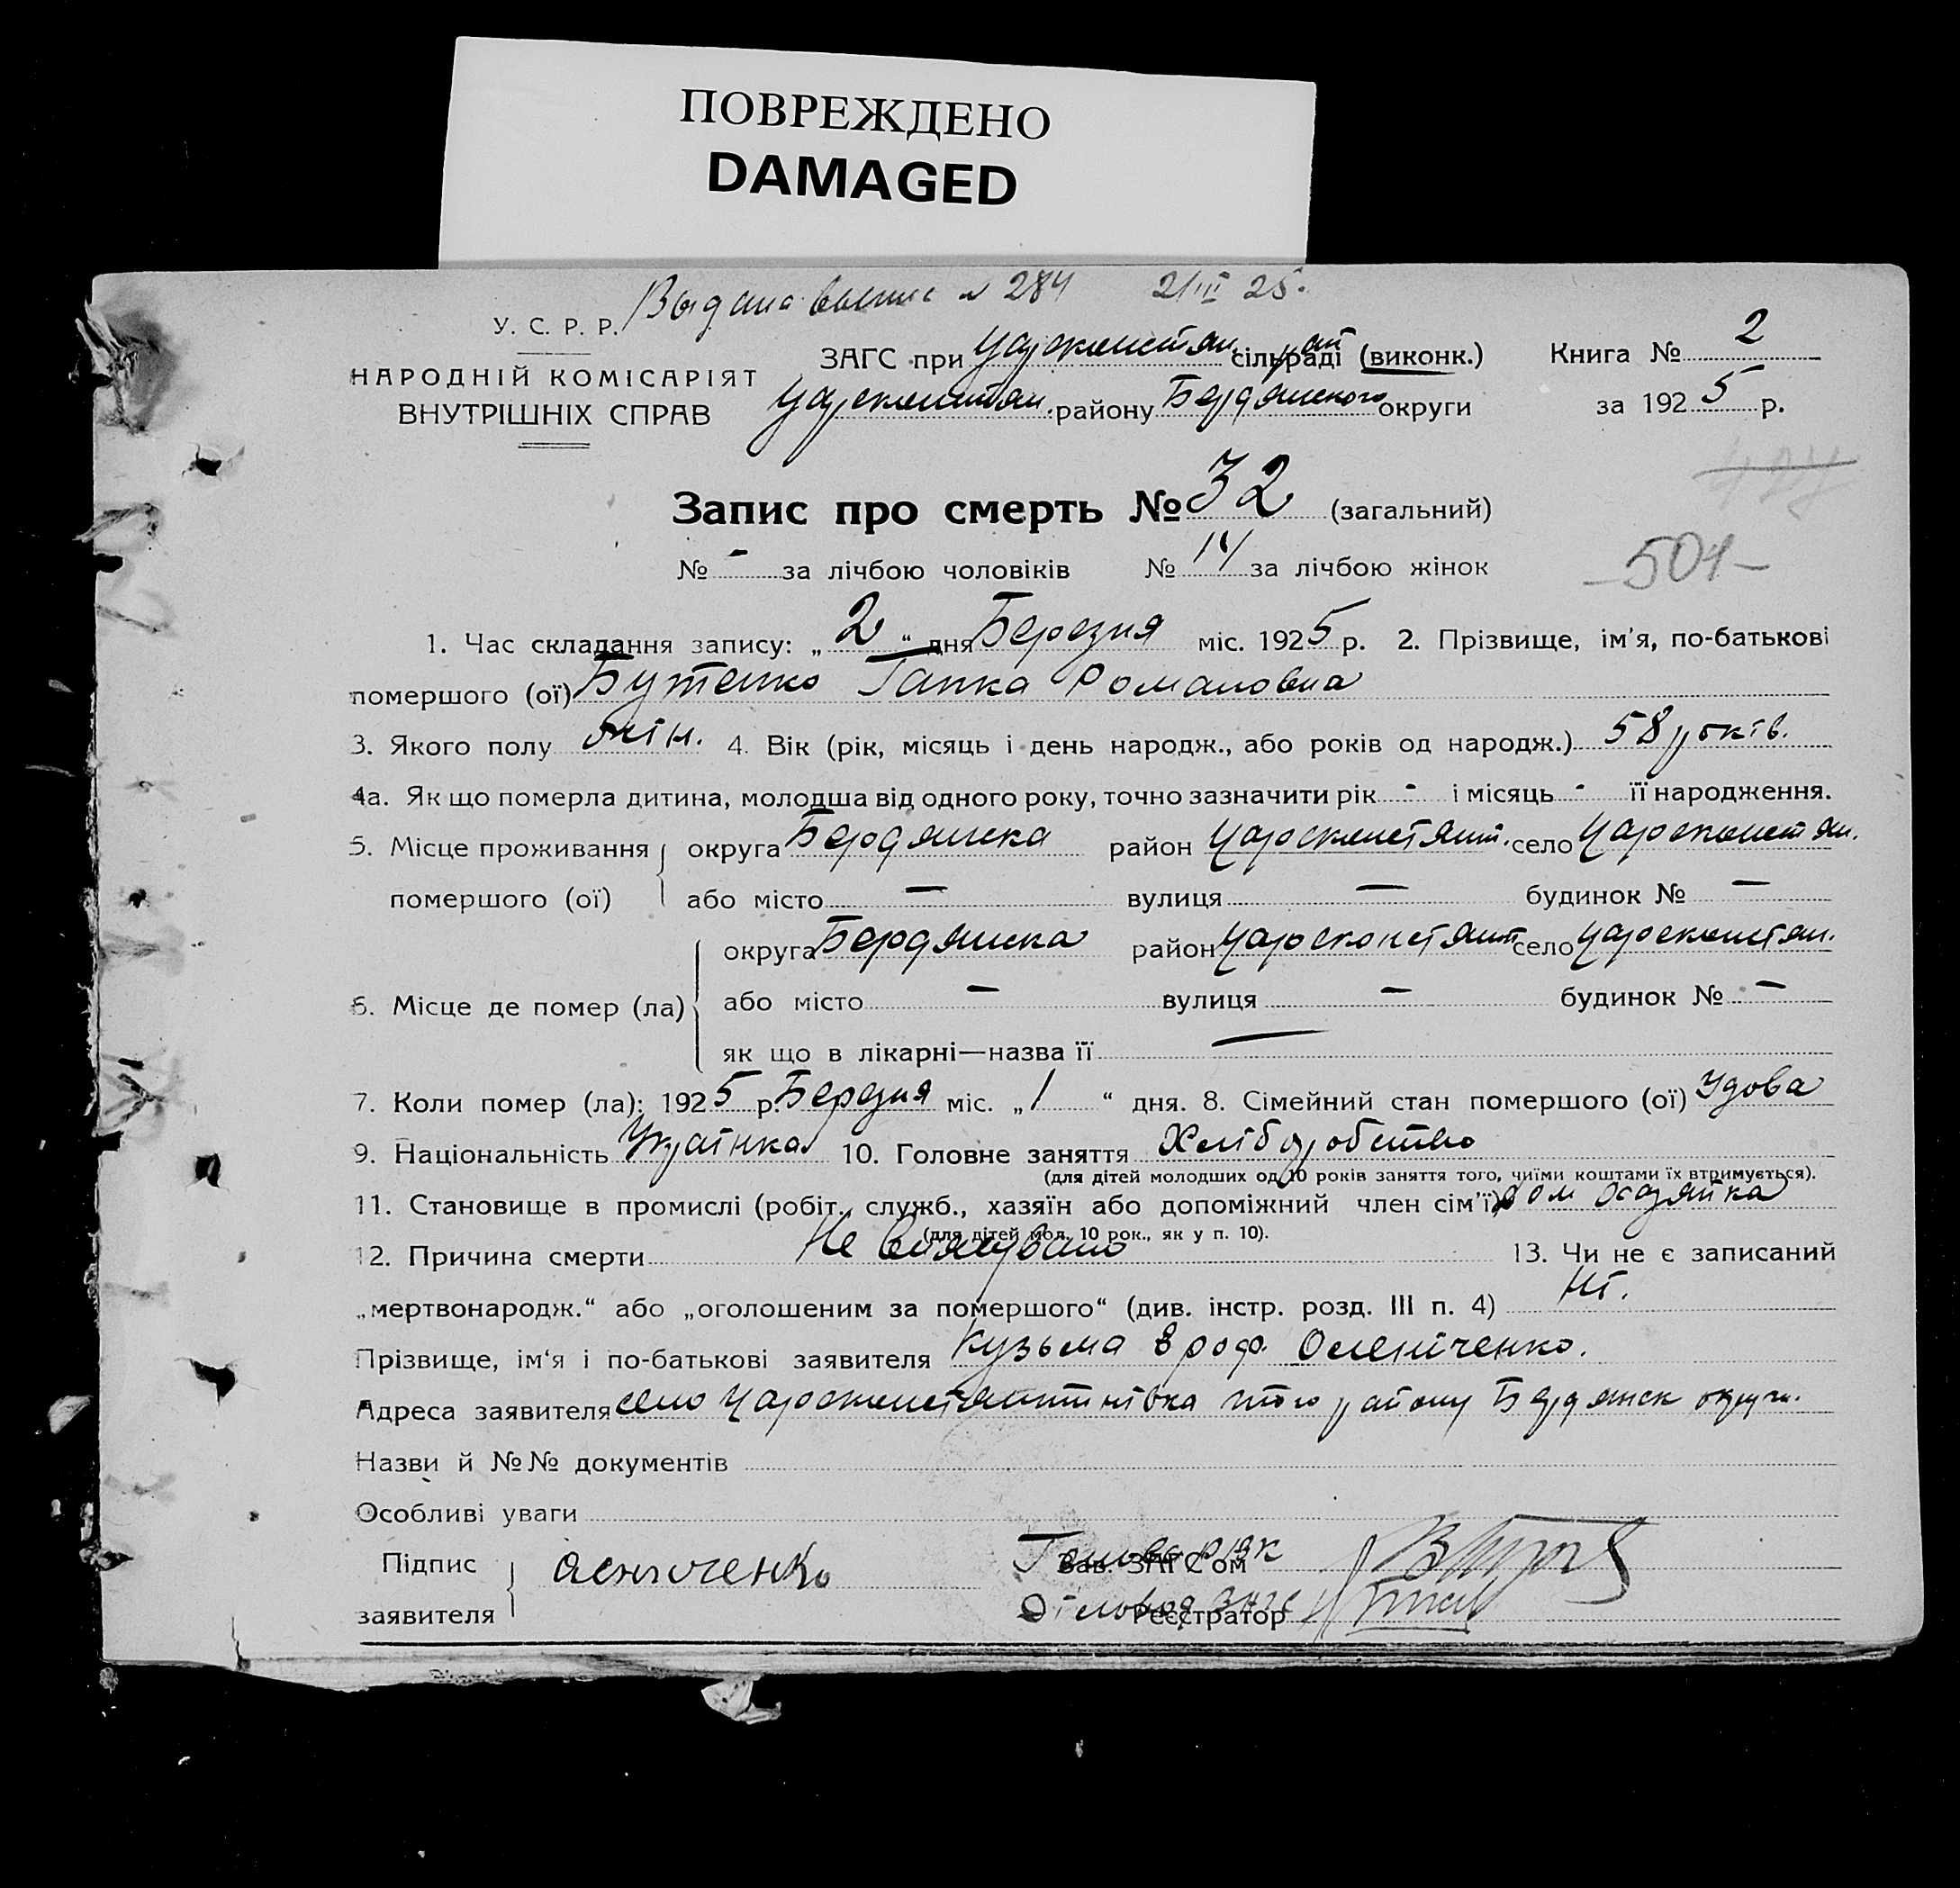 ПОВРЕЖДЕНО
DAMAGED
Выдана № 284 21/III 25.
У. С. Р. Р.
НАРОДНІЙ КОМІСАРІЯТ
ВНУТРІШНІХ СПРАВ
ЗАГС при Царсконстян. сільраді (виконк.)
Царсконстян. району Бердянського округи
Книга № 2
за 1925 р.
Запис про смерть № 32 (загальний)
№ - за лічбою чоловіків № 14 за лічбою жінок
501
1. Час складання запису: „2“ дня Березня міс. 1925 р. 2. Прізвище, ім'я, по-батькові
помершого (ої) Бутенко Гапка Романовна
3. Якого полу жін. 4. Вік (рік, місяць і день народж., або років од народж.) 58 років.
4а. Як що померла дитина, молодша від одного року, точно зазначити рік - і місяць - її народження.
5. Місце проживання помершого (ої) округа Бердянська район Царсконстянт. село Царсконстян.
або місто — вулиця — будинок № —
6. Місце де помер (ла) округа Бердянська район Царсконстянт село Царсконстян.
або місто — вулиця — будинок № —
як що в лікарні—назва її —
7. Коли помер (ла): 1925 р. Березня міс. „1“ дня. 8. Сімейний стан помершого (ої) Удова
9. Національність Українка 10. Головне заняття Хліборобство
(для дітей молодших од 10 років заняття того, чиїми коштами їх втримується).
11. Становище в промислі (робіт., служб., хазяїн або допоміжний член сім'ї) дом хозяйка
(для дітей мол. 10 рок., як у п. 10).
12. Причина смерти Не 13. Чи не є записаний
„мертвонародж.“ або „оголошеним за помершого“ (див. інстр. розд. III п. 4) Ні.
Прізвище, ім'я і по-батькові заявителя Кузьма Ероф. Оленіченко.
Адреса заявителя село Царсконстянтинівка того району Бердянск округи.
Назви й №№ документів
Особливі уваги
Підпис заявителя
Голова РВК
Зав. ЗАГС'ом
Реєстратор